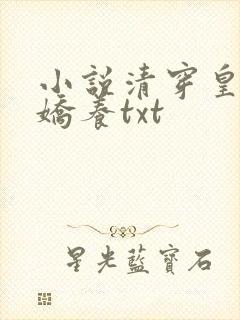 小說清穿皇
嬌養txt
星光藍寶石